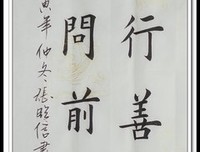 行善
問前
寅年仲冬張聆信書